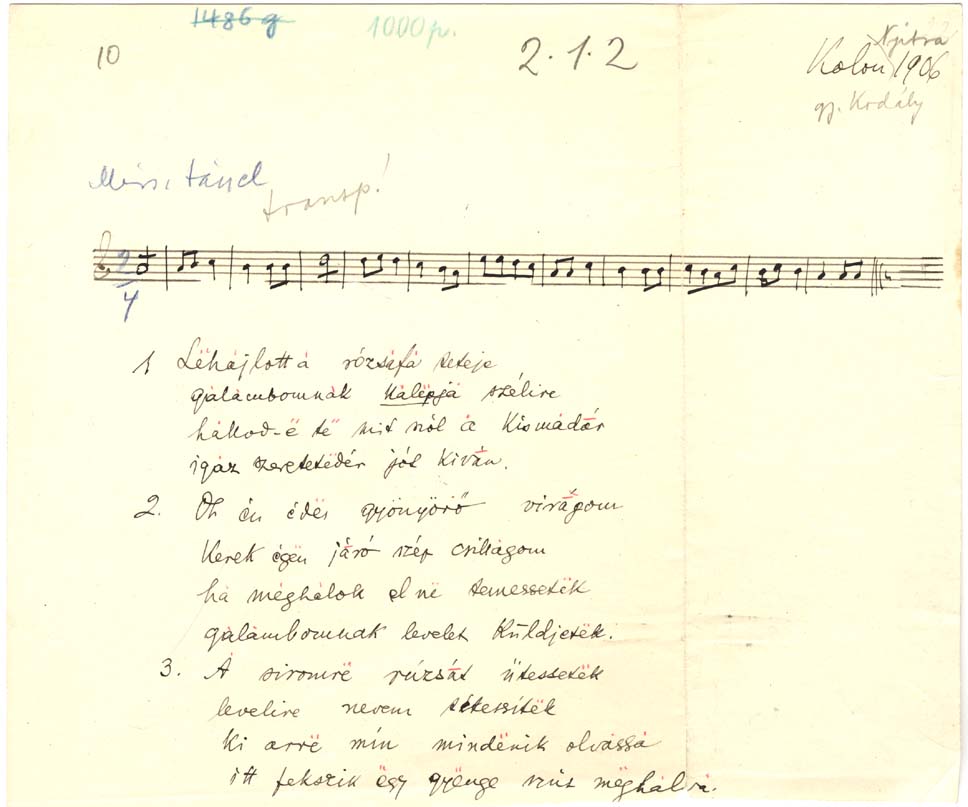 1486 g
1000 p.
10
2.1.2
Nyitra
Kolon 1906
gy. Kodály
transp!
2
4
1 Lëhȧjlott ȧ rózsȧfȧ teteje
gȧlȧmbomnȧk kȧlëpjȧ szélire
hȧllod-ë të mit szól ȧ kismȧdár
igȧz szeretetëdér jót kiván.
2. Oh én édës gyönyörő virágom
kerek égën járó szép csillȧgom
hȧ mëghȧlok el në temessetëk
gȧlȧmbomnak levelet küldjetëk.
3. Ȧ siromrë rúzsát űtessetëk
levelire nevem tétessíték
ki ȧrrë mín mindënik olvȧssȧ
itt fekszik ëgy gyënge szűz mëghȧlvȧ.